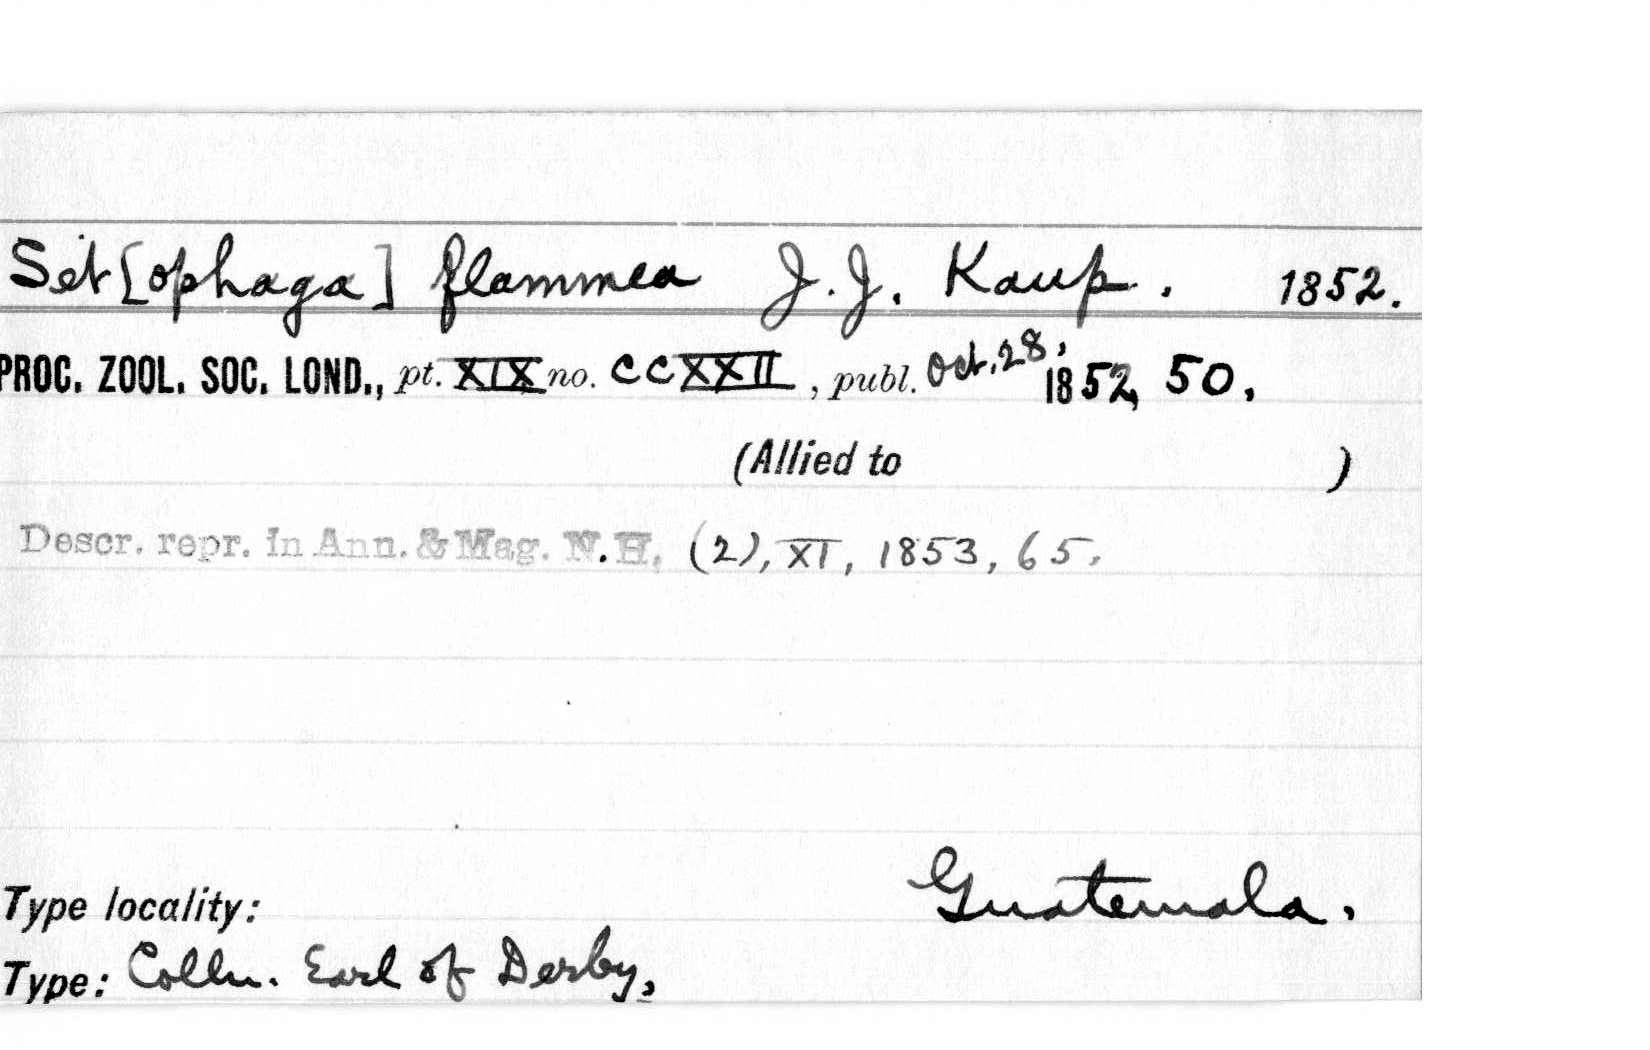 Set[ophaga] flammea J. J. Kaup. 1852.
PROC. ZOOL. SOC. LOND., pt. XIX no. CCXXII, publ. Oct. 28, 1852, 50.
(Allied to )
Descr. repr. in Ann. & Mag. N.H. (2), XI, 1853, 65.
Type locality: Guatemala.
Type: Colln. Earl of Derby.